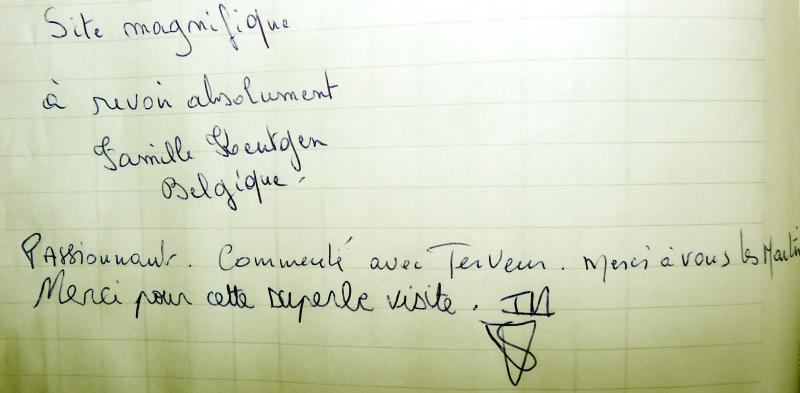 Site magnifique
à revoir absolument
Famille Kentgen
Belgique.
Passionnant. Commenté avec Ferveur. Merci à vous les Martin
Merci pour cette superbe visite.